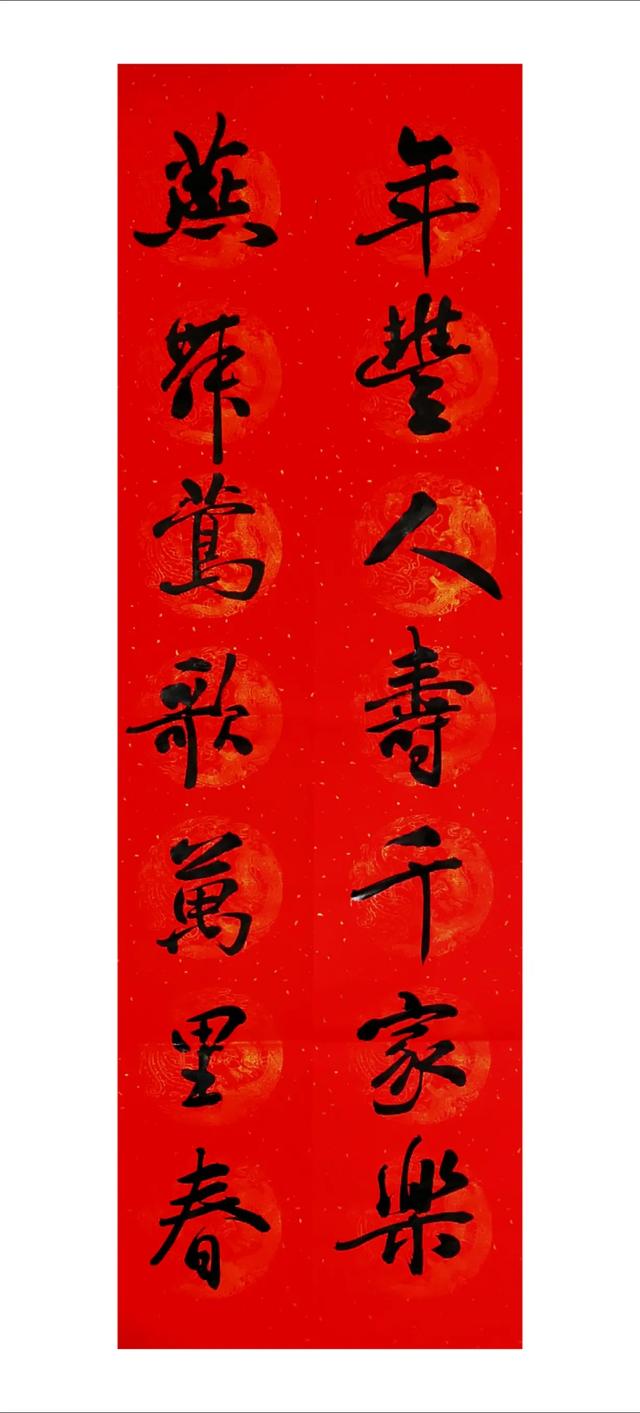 年豐人壽千家樂
燕舞莺歌萬里春